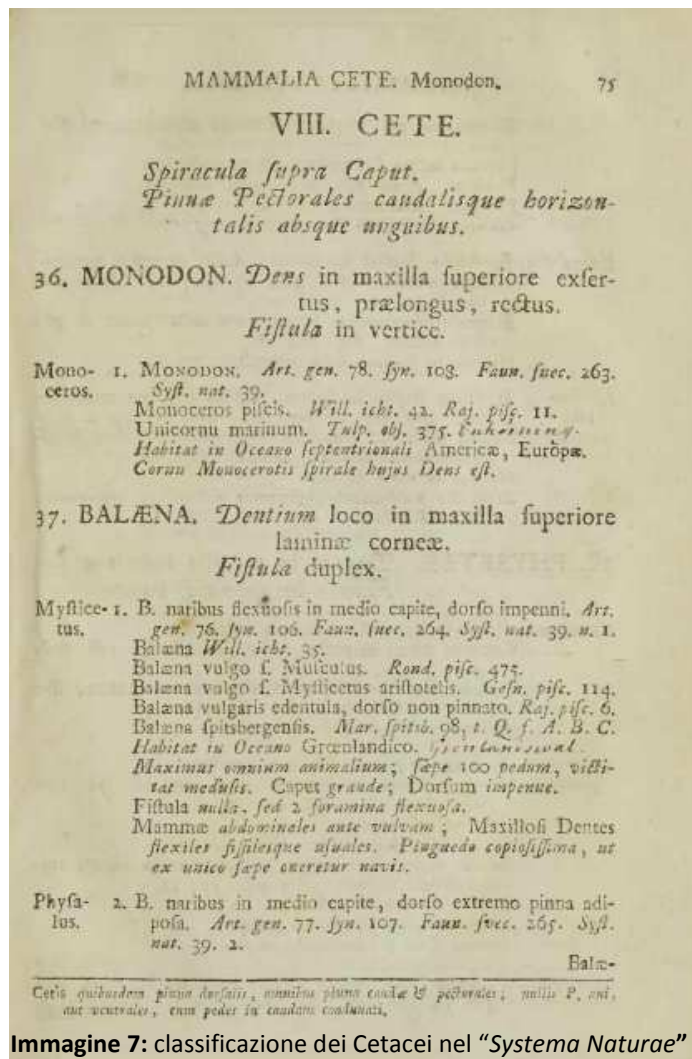 MAMMALIA CETE. Monodon. 75
VIII. CETE.
Spiracula ſupra Caput.
Pinnæ Pectorales caudalisque horizon-
talis absque unguibus.
36. MONODON. Dens in maxilla ſuperiore exſer-
tus, prælongus, rectus.
Fiſtula in vertice.
Mono- 1. MONODON. Art. gen. 78. ſyn. 108. Faun. ſuec. 263.
ceros. Syſt. nat. 39.
Monoceros piſcis. Will. icht. 42. Raj. piſc. 11.
Unicornu marinum. Tulp. obſ. 375.
Habitat in Oceano ſeptentrionali Americæ, Europæ.
Cornu Monocerotis ſpirale hujus Dens eſt.
37. BALÆNA. Dentium loco in maxilla ſuperiore
laminæ corneæ.
Fiſtula duplex.
Myſtice- 1. B. naribus flexuoſis in medio capite, dorſo impenni. Art.
tus. gen. 76. ſyn. 106. Faun. ſuec. 264. Syſt. nat. 39. n. 1.
Balæna Will. icht. 35.
Balæna vulgo ſ. Muſculus. Rond. piſc. 475.
Balæna vulgo ſ. Myſticetus ariſtotelis. Geſn. piſc. 114.
Balæna vulgaris edentula, dorſo non pinnato. Raj. piſc. 6.
Balæna ſpitsbergenſis. Mar. ſpitsb. 98, t. Q. f. A. B. C.
Habitat in Oceano Grœnlandico.
Maximus omnium animalium; ſæpe 100 pedum, victi-
tat meduſis. Caput grande; Dorſum impenne.
Fiſtula nulla, ſed 2 foramina flexuoſa.
Mammæ abdominales ante vulvam; Maxilloſi Dentes
flexiles fiſſilesque uſuales. Pinguedo copioſiſſima, ut
ex unico ſæpe oneretur navis.
Phyſa- 2. B. naribus in medio capite, dorſo extremo pinna adi-
lus. poſa. Art. gen. 77. ſyn. 107. Faun. ſvec. 265. Syſt.
nat. 39. 2.
Balæ-
Cetis quibusdam pinna dorſalis, omnibus pinna caudæ & pectorales; nullis P. ani,
aut ventrales, cum pedes in caudam coadunati.
Immagine 7: classificazione dei Cetacei nel “Systema Naturae”